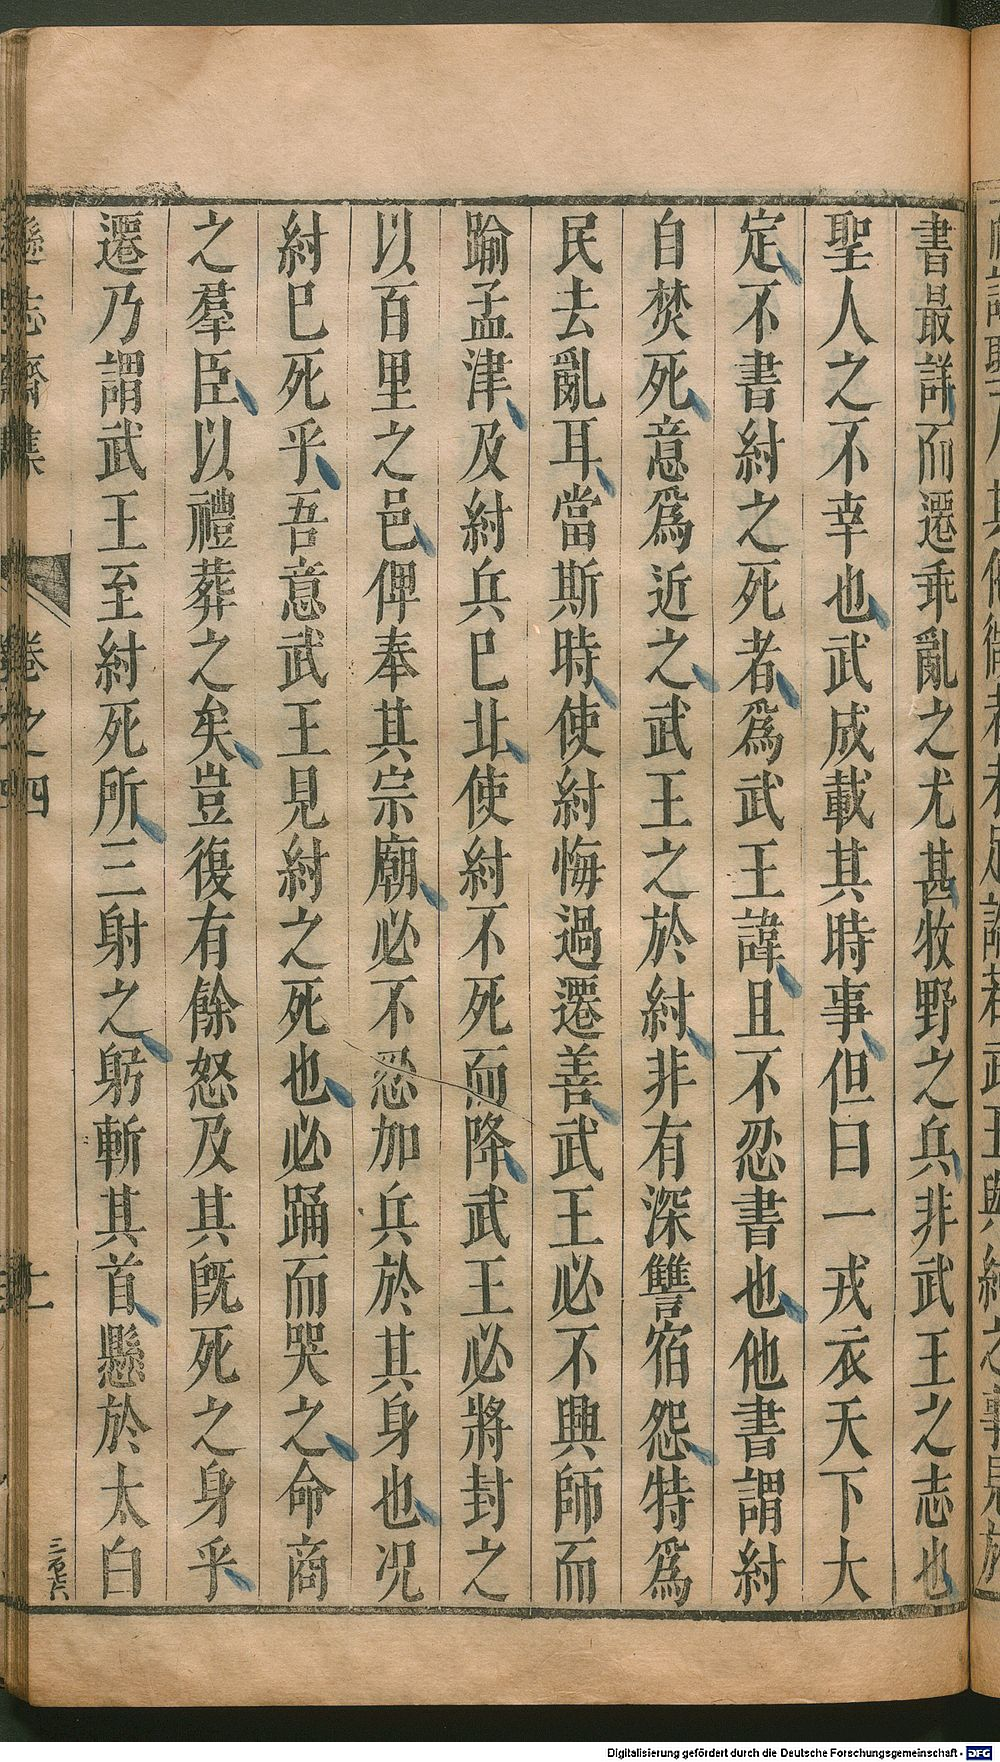 書最詳而遷乖亂之尤甚牧野之兵非武王之志也
聖人之不幸也武成載其時事但曰一戎衣天下大
定不書紂之死者爲武王諱且不忍書也他書謂紂
自焚死意爲近之武王之於紂非有深讐宿怨特爲
民去亂耳當斯時使紂悔過遷善武王必不興師而
踰孟津及紂兵巳北使紂不死而降武王必將封之
以百里之邑俾奉其宗廟必不忍加兵於其身也况
紂巳死乎吾意武王見紂之死也必踊而哭之命商
之羣臣以禮葬之矣豈復有餘怒及其旣死之身乎
遷乃謂武王至紂死所三射之躬斬其首懸於太白
遜志齋集
卷之四
三百七六
Digitalisierung gefördert durch die Deutsche Forschungsgemeinschaft - DFG